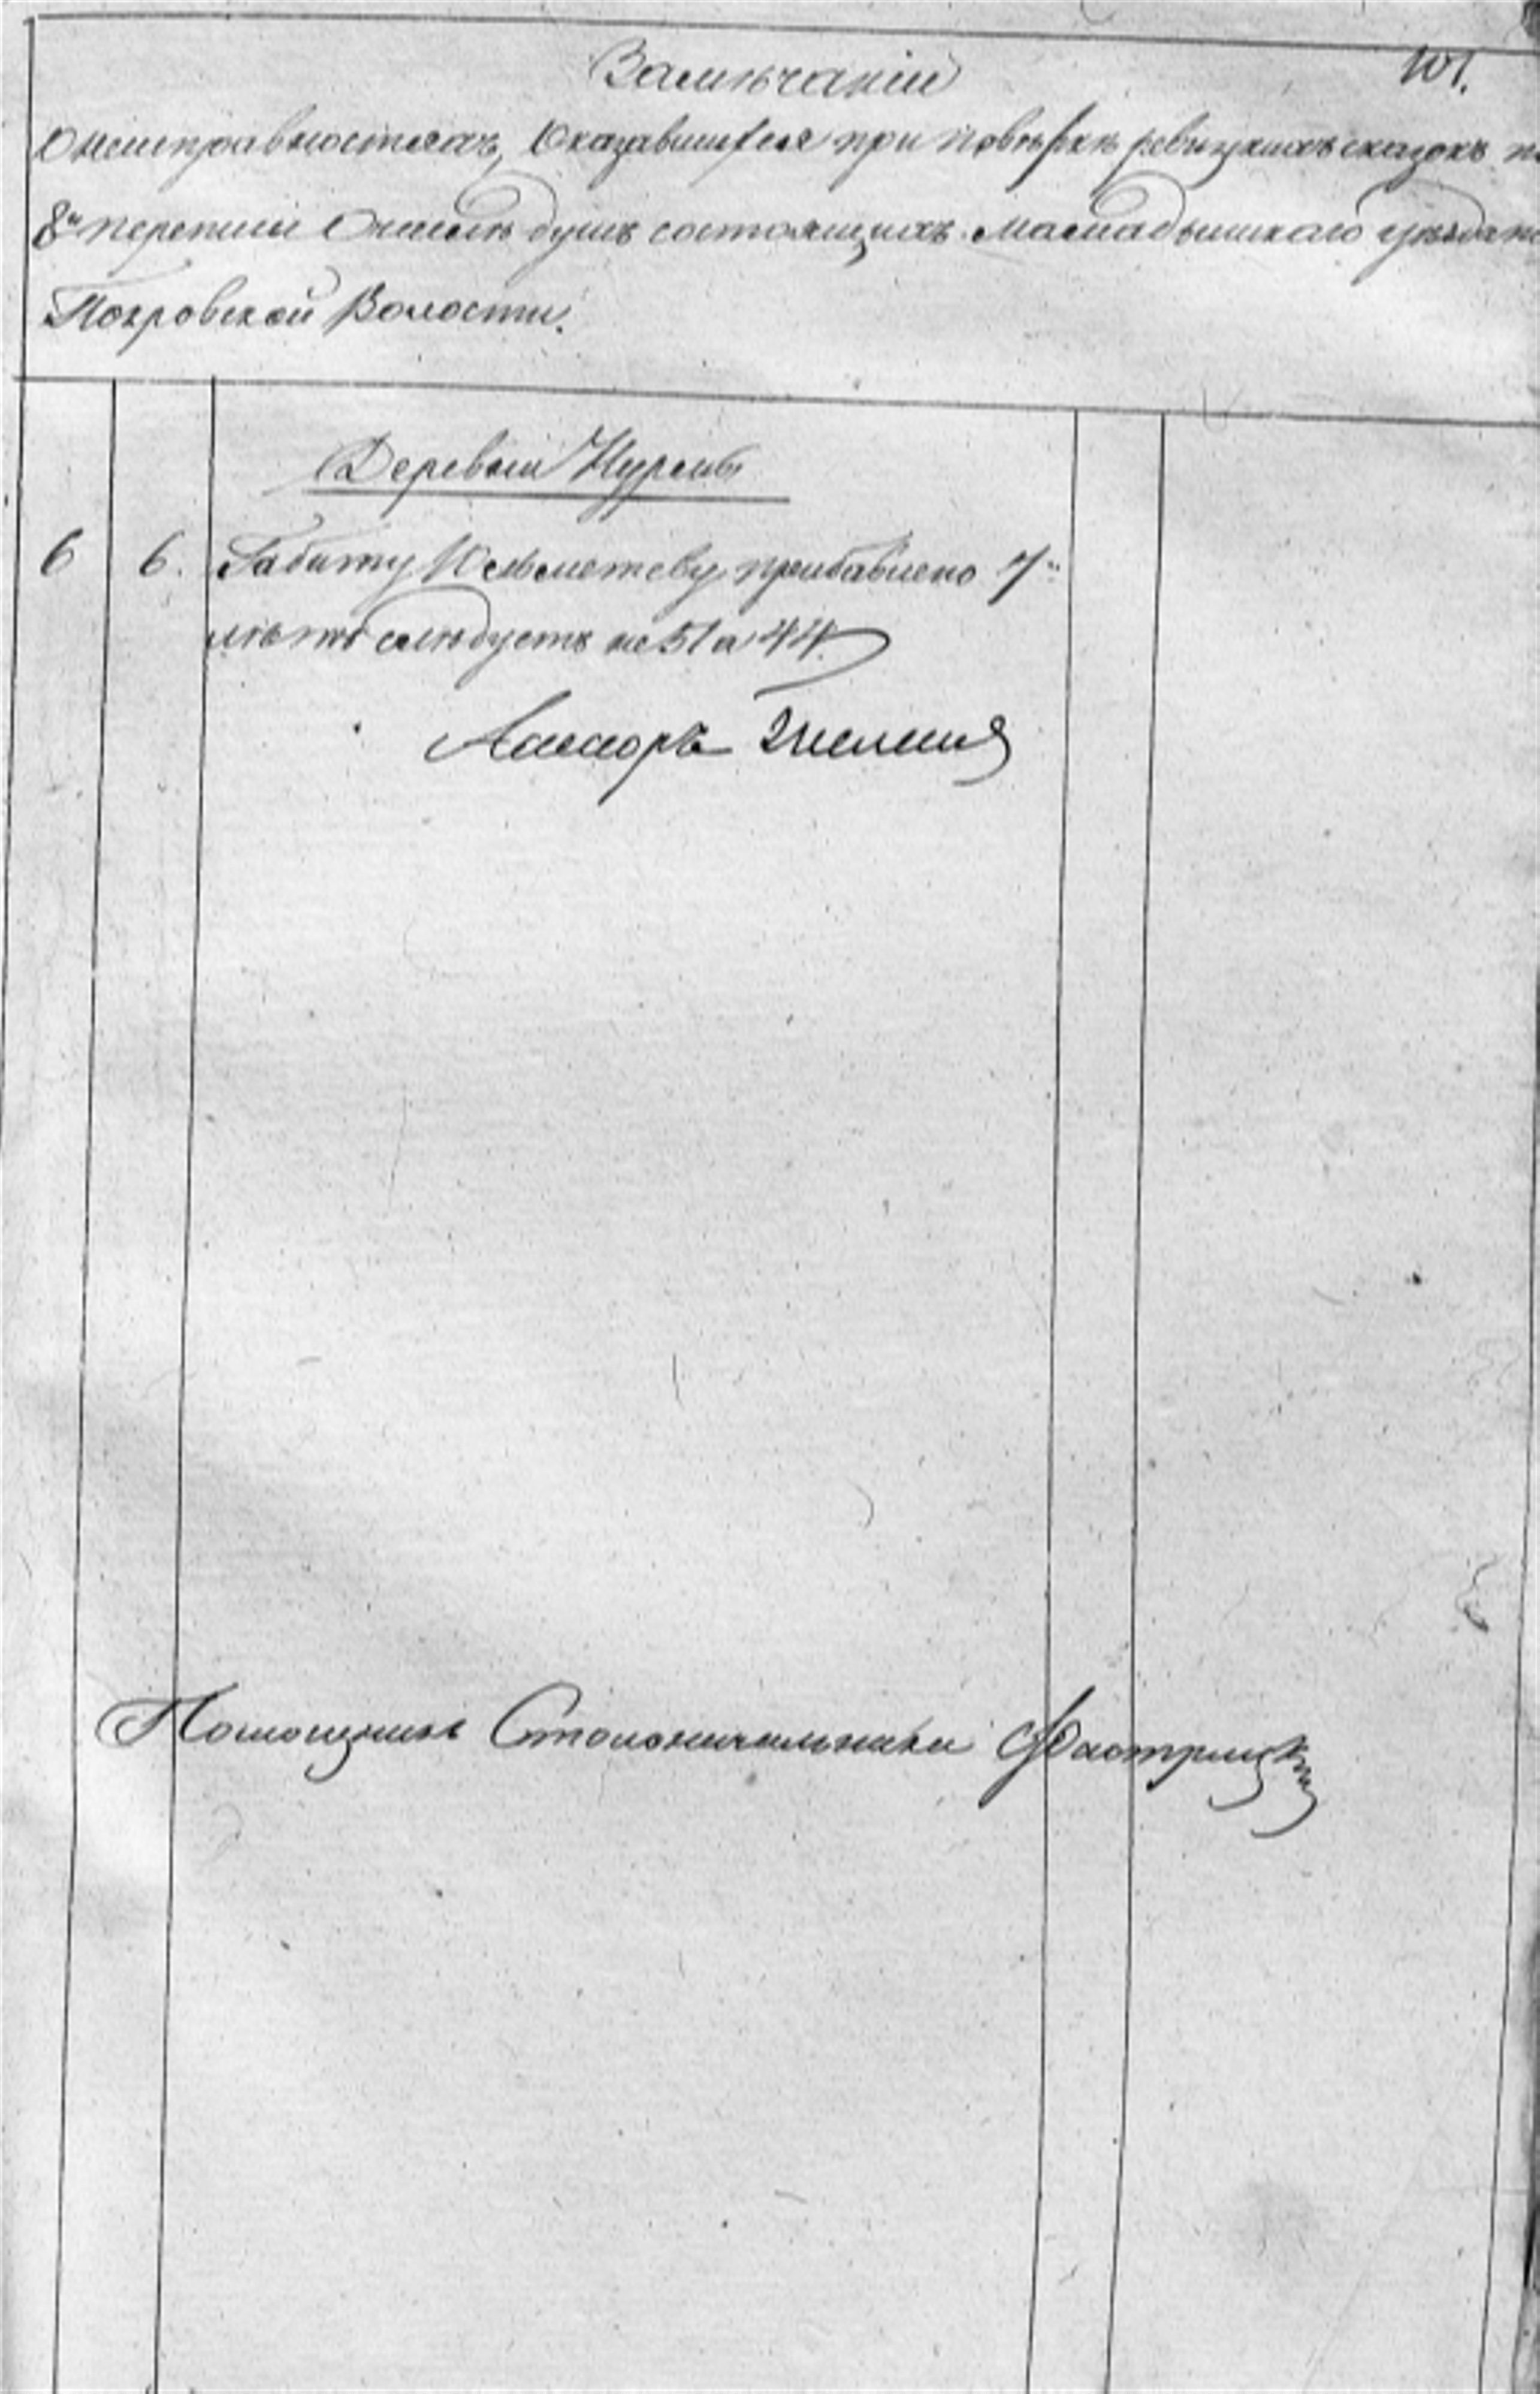 Замѣчаніи
101.
О неисправностяхъ, Оказавшихся при повѣркѣ ревизкихъ сказокъ по
8й переписи О числѣ душъ состоящихъ Мамадышскаго уѣзда по
Покровской Волости.
Деревни Нурмы
6 6. Габиту Юсьметеву прибавлено 7мь
лѣтъ слѣдуетъ не 51 а 44.
Асесоръ
Помощникъ Столоначальника